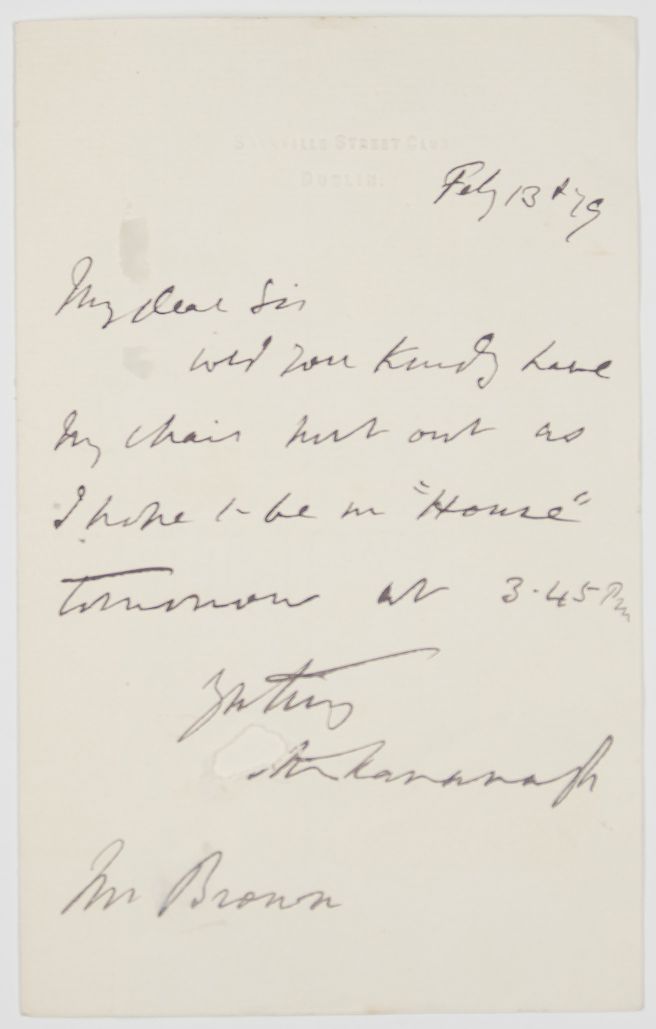 SACKVILLE STREET CLUB
DUBLIN.
Feby 13th 79
My dear Sir
wld you kindly have
my chair put out as
I hope to be in "House"
tomorrow at 3.45 Pm
Yrs truly
Ar Kavanagh
Mr Brown